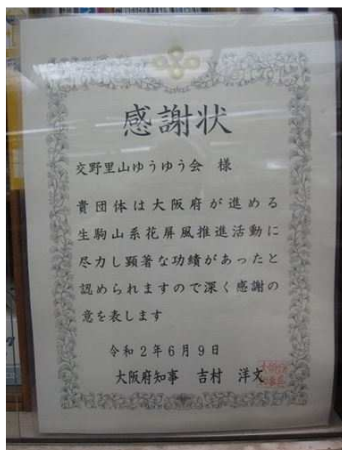 感謝状
交野里山ゆうゆう会 様
貴団体は大阪府が進める
生駒山系花屏風推進活動に
尽力し顕著な功績があったと
認められますので深く感謝の
意を表します
令和2年6月9日
大阪府知事 吉村 洋文